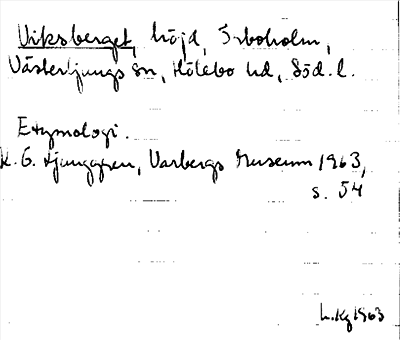 Viksberget, höjd, Orboholm,
Västerljungs sn, Hölebo hd, Söd. l.
Etymologi.
K. G. Ljunggren, Varbergs Museum 1963,
s. 54
L. Kg 1963